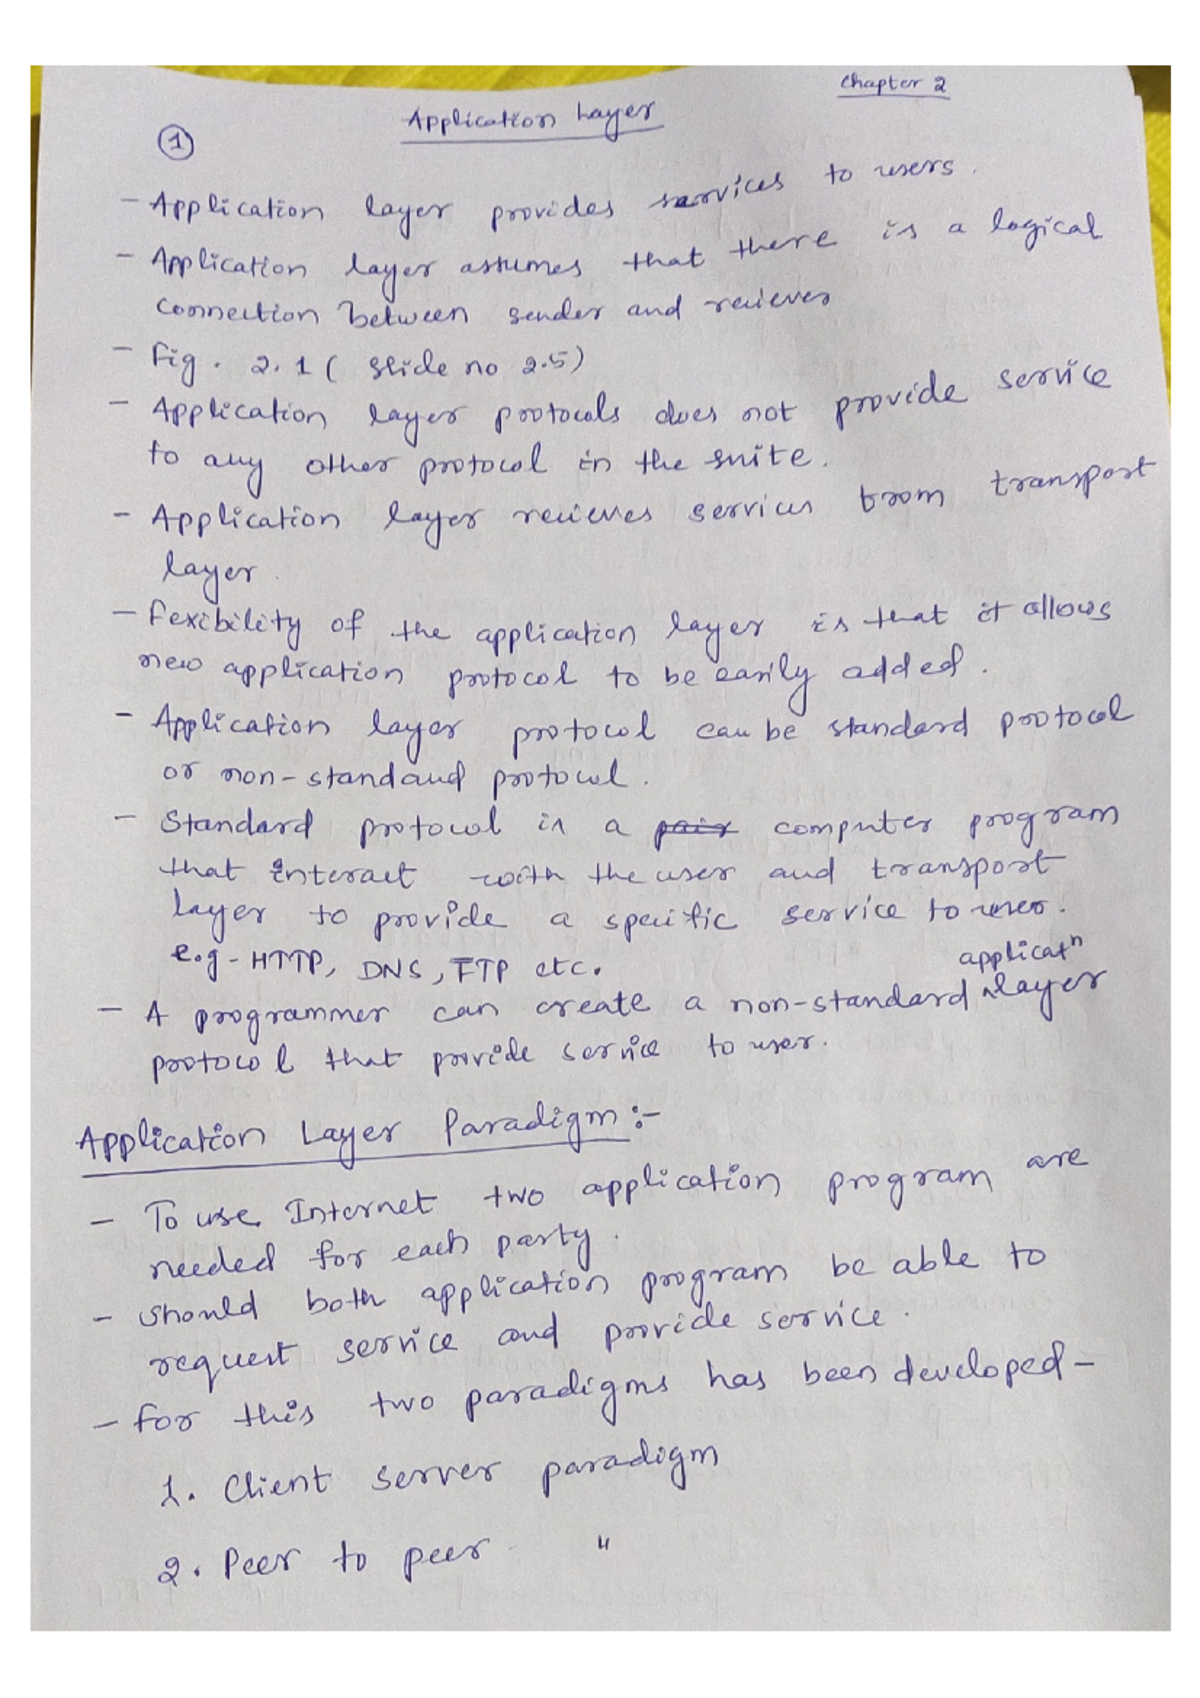 Chapter 2
Application Layer
1
- Application layer provides services to users.
- Application layer assumes that there is a logical
connection between sender and reciever
- Fig. 2.1 ( slide no 2.5)
- Application layer protocols does not provide service
to any other protocol in the suite.
- Application layer recieves services from transport
layer.
- Fexibility of the application layer is that it allows
new application protocol to be easily added.
- Application layer protocol can be standard protocol
or non-standard protocol.
- Standard protocol is a pair computer program
that interact with the user and transport
layer to provide a specific service to user.
e.g - HTTP, DNS, FTP etc.
applicatn
- A programmer can create a non-standard ^layer
protocol that provide service to user.
Application Layer Paradigm :-
- To use Internet two application program are
needed for each party.
- Should both application program be able to
request service and provide service.
- For this two paradigms has been developed -
1. Client server paradigm
2. Peer to peer "